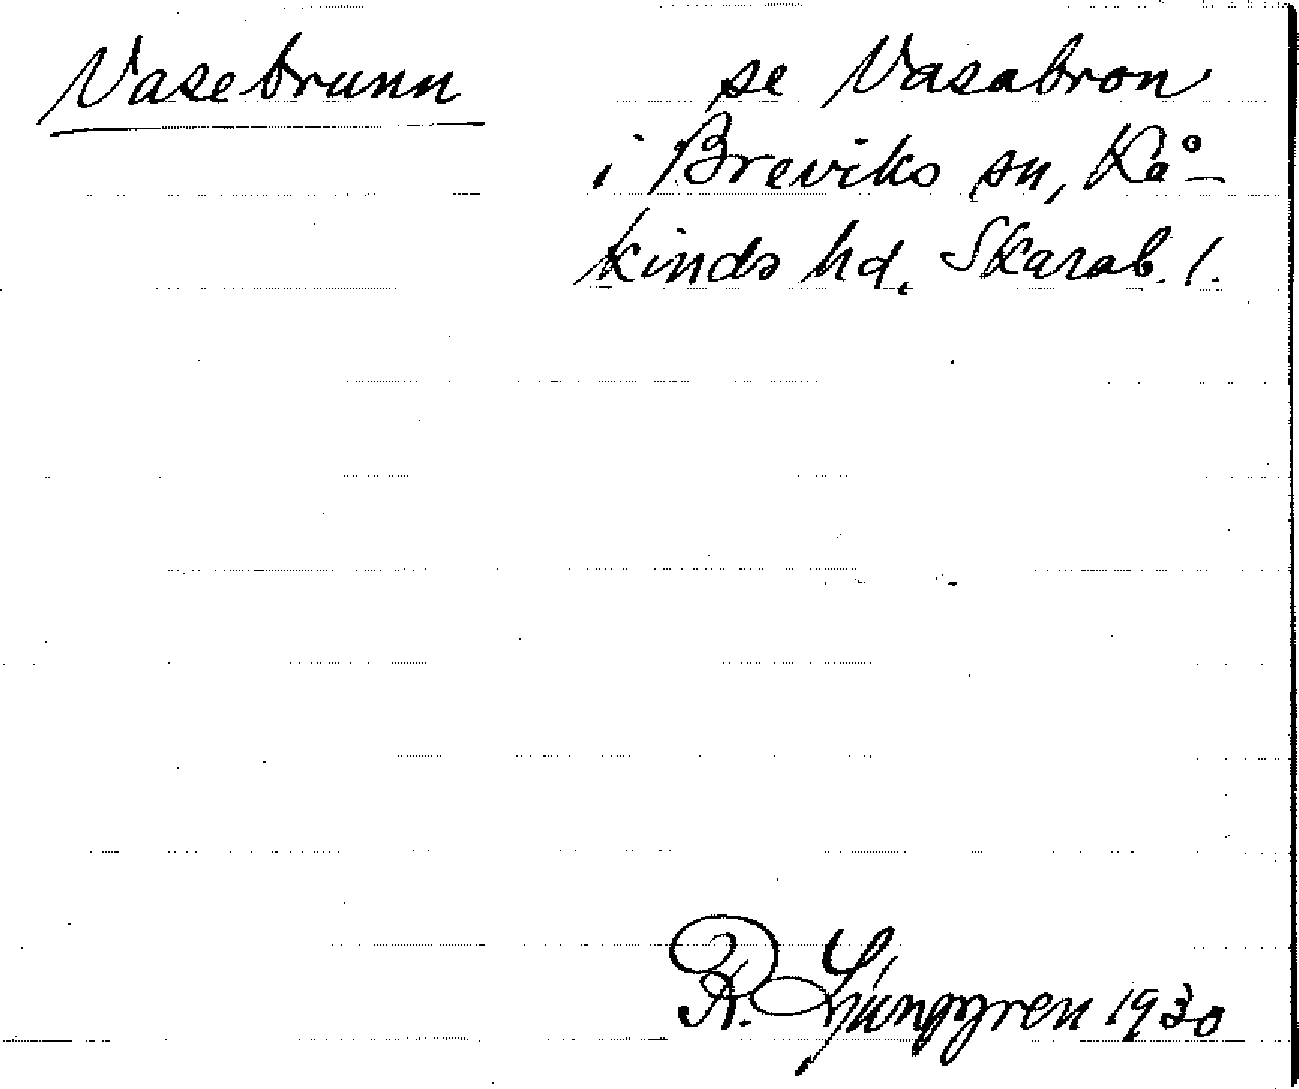 Vasebrunn se Vasabron
i Breviks sn, Kå-
kinds hd. Skarab. l.
R. Ljunggren 1930